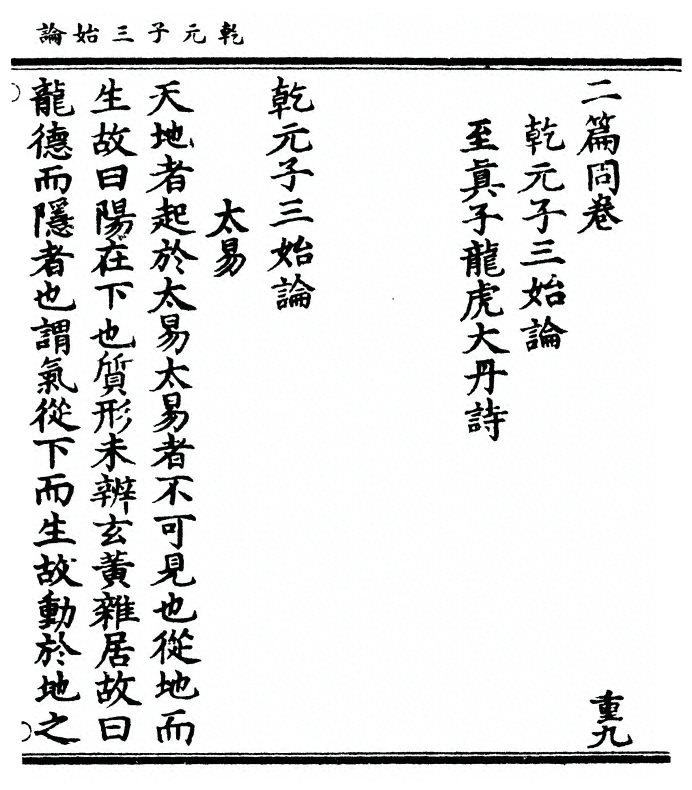 乾元子三始論
二篇同卷 重九
乾元子三始論
至眞子龍虎大丹詩
乾元子三始論
太易
天地者起於太易太易者不可見也從地而
生故曰陽在下也質形未辨玄黃雜居故曰
龍德而隱者也謂氣從下而生故動於地之